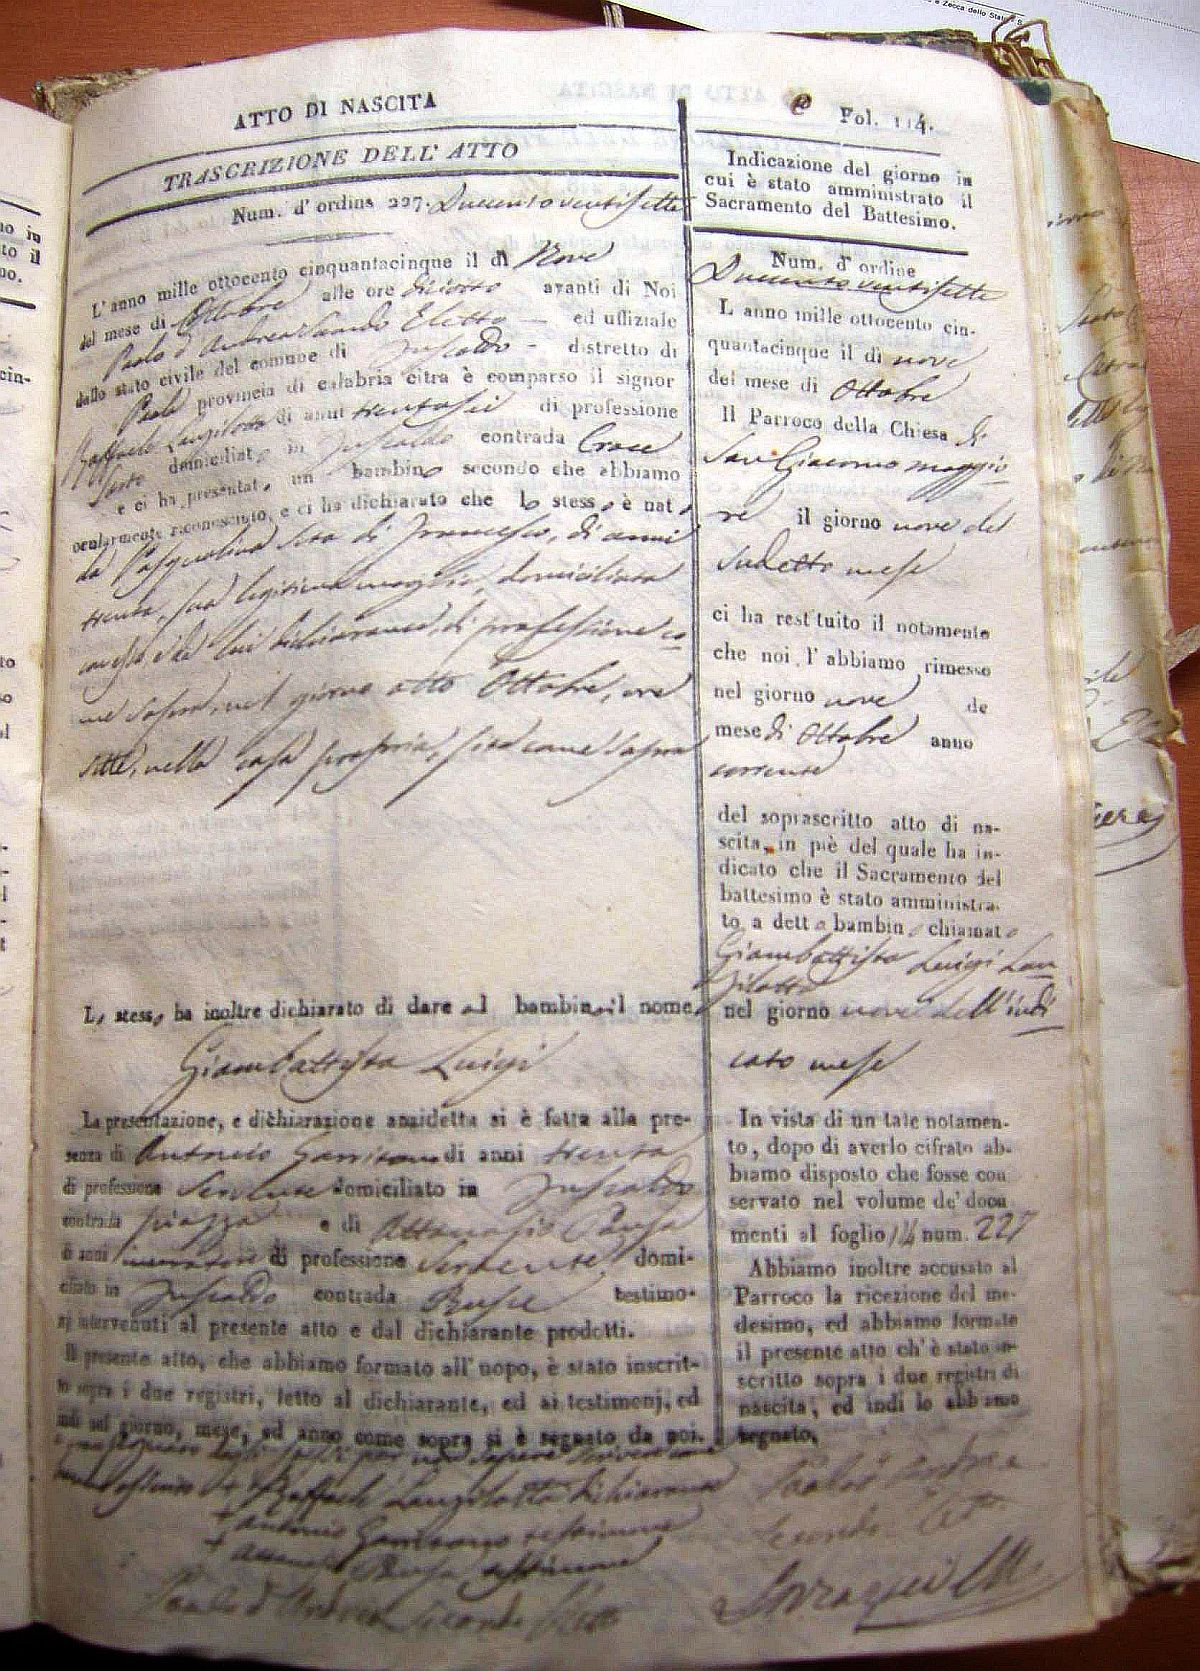 e Zecca dello Stato
ATTO DI NASCITA
TRASCRIZIONE DELL' ATTO
Num. d' ordine 227. Duecento ventisette
L' anno mille ottocento cinquantacinque il dì Nove
del mese di Ottobre alle ore diciotto avanti di Noi
Paolo d'Andrea Secondo Eletto — ed uffiziale
dello stato civile del comune di Fuscaldo - distretto di
Paola provincia di calabria citra è comparso il signor
Raffaele Lanzilotta di anni trentasei di professione
Sarto domiciliato in Fuscaldo contrada Croce
e ci ha presentato un bambino secondo che abbiamo
ocularmente riconosciuto, e ci ha dichiarato che lo stesso è nato
da Pasqualina Seta di Francesco, di anni
trenta, sua legitima moglie, domiciliata
con esso lui dichiarante, di professione co
me sopra, nel giorno otto Ottobre, ore
sette, nella casa propria, sita come sopra
Lo stesso ha inoltre dichiarato di dare al bambino il nome
Giambattista Luigi
La presentazione, e dichiarazione anzidetta si è fatta alla pre-
senza di Antonio di anni trenta
di professione Serviente domiciliato in Fuscaldo
contrada piazza e di
di anni di professione Serviente domi-
ciliato in Fuscaldo contrada testimo-
nj intervenuti al presente atto e dal dichiarante prodotti.
Il presente atto, che abbiamo formato all' uopo, è stato inscrit-
to sopra i due registri, letto al dichiarante, ed ai testimonj, ed
indi nel giorno, mese, ed anno come sopra si è segnato da noi.
per non sapere scrivere
Raffaele Lanzilotta dichiarante
Antonio testimone
testimone
Paolo d'Andrea Secondo Eletto
Fol. 114.
Indicazione del giorno in
cui è stato amministrato il
Sacramento del Battesimo.
Num. d' ordine
Duecento ventisette
L anno mille ottocento cin-
quantacinque il dì nove
del mese di Ottobre
Il Parroco della Chiesa di
San Giacomo maggio
re il giorno nove del
sudetto mese
ci ha rest'tuito il notamento
che noi l' abbiamo rimesso
nel giorno nove de
mese di Ottobre anno
corrente
del soprascritto atto di na-
scita, in piè del quale ha in-
dicato che il Sacramento del
battesimo è stato amministra-
to a detto bambino chiamato
Giambattista Luigi Lan
zilotta
nel giorno nove dell'indi
cato mese
In vista di un tale notamen-
to, dopo di averlo cifrato ab-
biamo disposto che fosse con
servato nel volume de' docu
menti al foglio 114 num. 227
Abbiamo inoltre accusato al
Parroco la ricezione del me-
desimo, ed abbiamo formato
il presente atto ch' è stato in-
scritto sopra i due registri di
nascita, ed indi lo abbiamo
segnato.
Paolo d'Andrea
Secondo Eletto